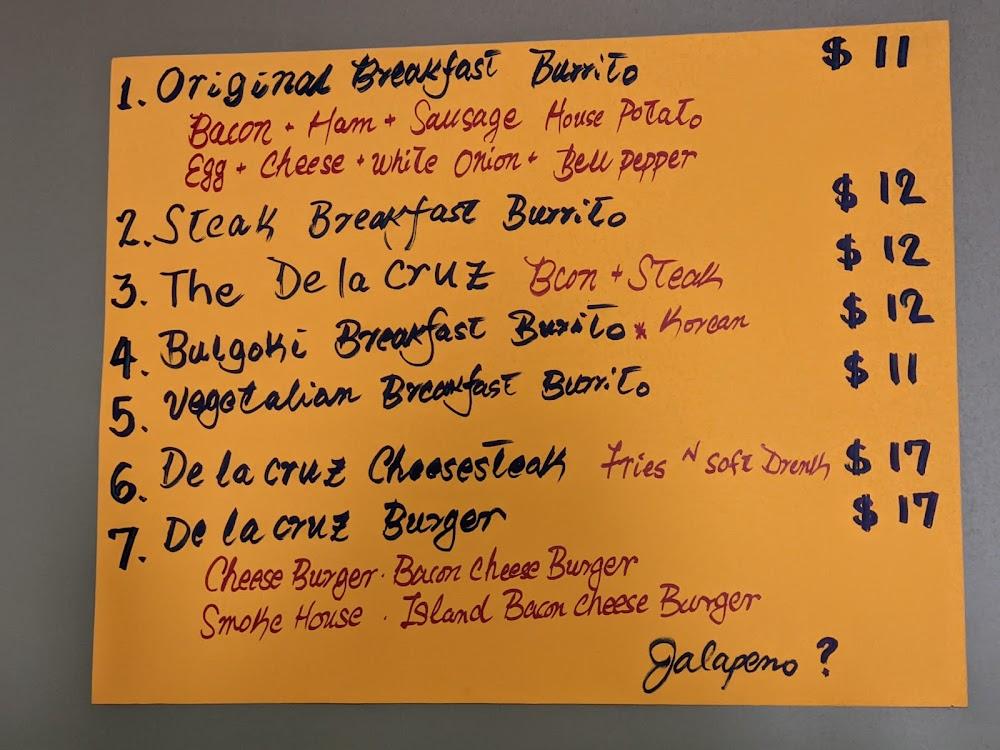 1. Original Breakfast Burrito $ 11
Bacon + Ham + Sausage House Potato
Egg + Cheese + white Onion + Bell pepper
2. Steak Breakfast Burrito $ 12
3. The De la cruz Bcon + Steak $ 12
4. Bulgoki Breakfast Burrito * Korean $ 12
5. Vegetalian Breakfast Burrito $ 11
6. De la cruz Cheesesteak Fries N soft Drenk $ 17
7. De la cruz Burger $ 17
Cheese Burger · Bacon Cheese Burger
Smoke House · Island Bacon cheese Burger
Jalapeno ?